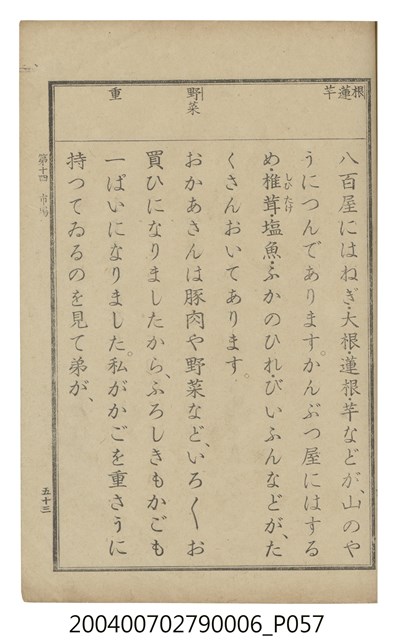 根
蓮
芋
野菜
重
八百屋にはねぎ・大根・蓮根・芋などが、山のや
うにつんであります。かんぶつ屋にはする
め・椎茸・塩魚・ふかのひれ・びいふんなどが、た
しひたけ
くさんおいてあります。
おかあさんは豚肉や野菜など、いろ〱お
買ひになりましたから、ふろしきもかごも
一ぱいになりました。私がかごを重さうに
持つてゐるのを見て弟が、
第十四 市場
五十三
200400702790006_P057